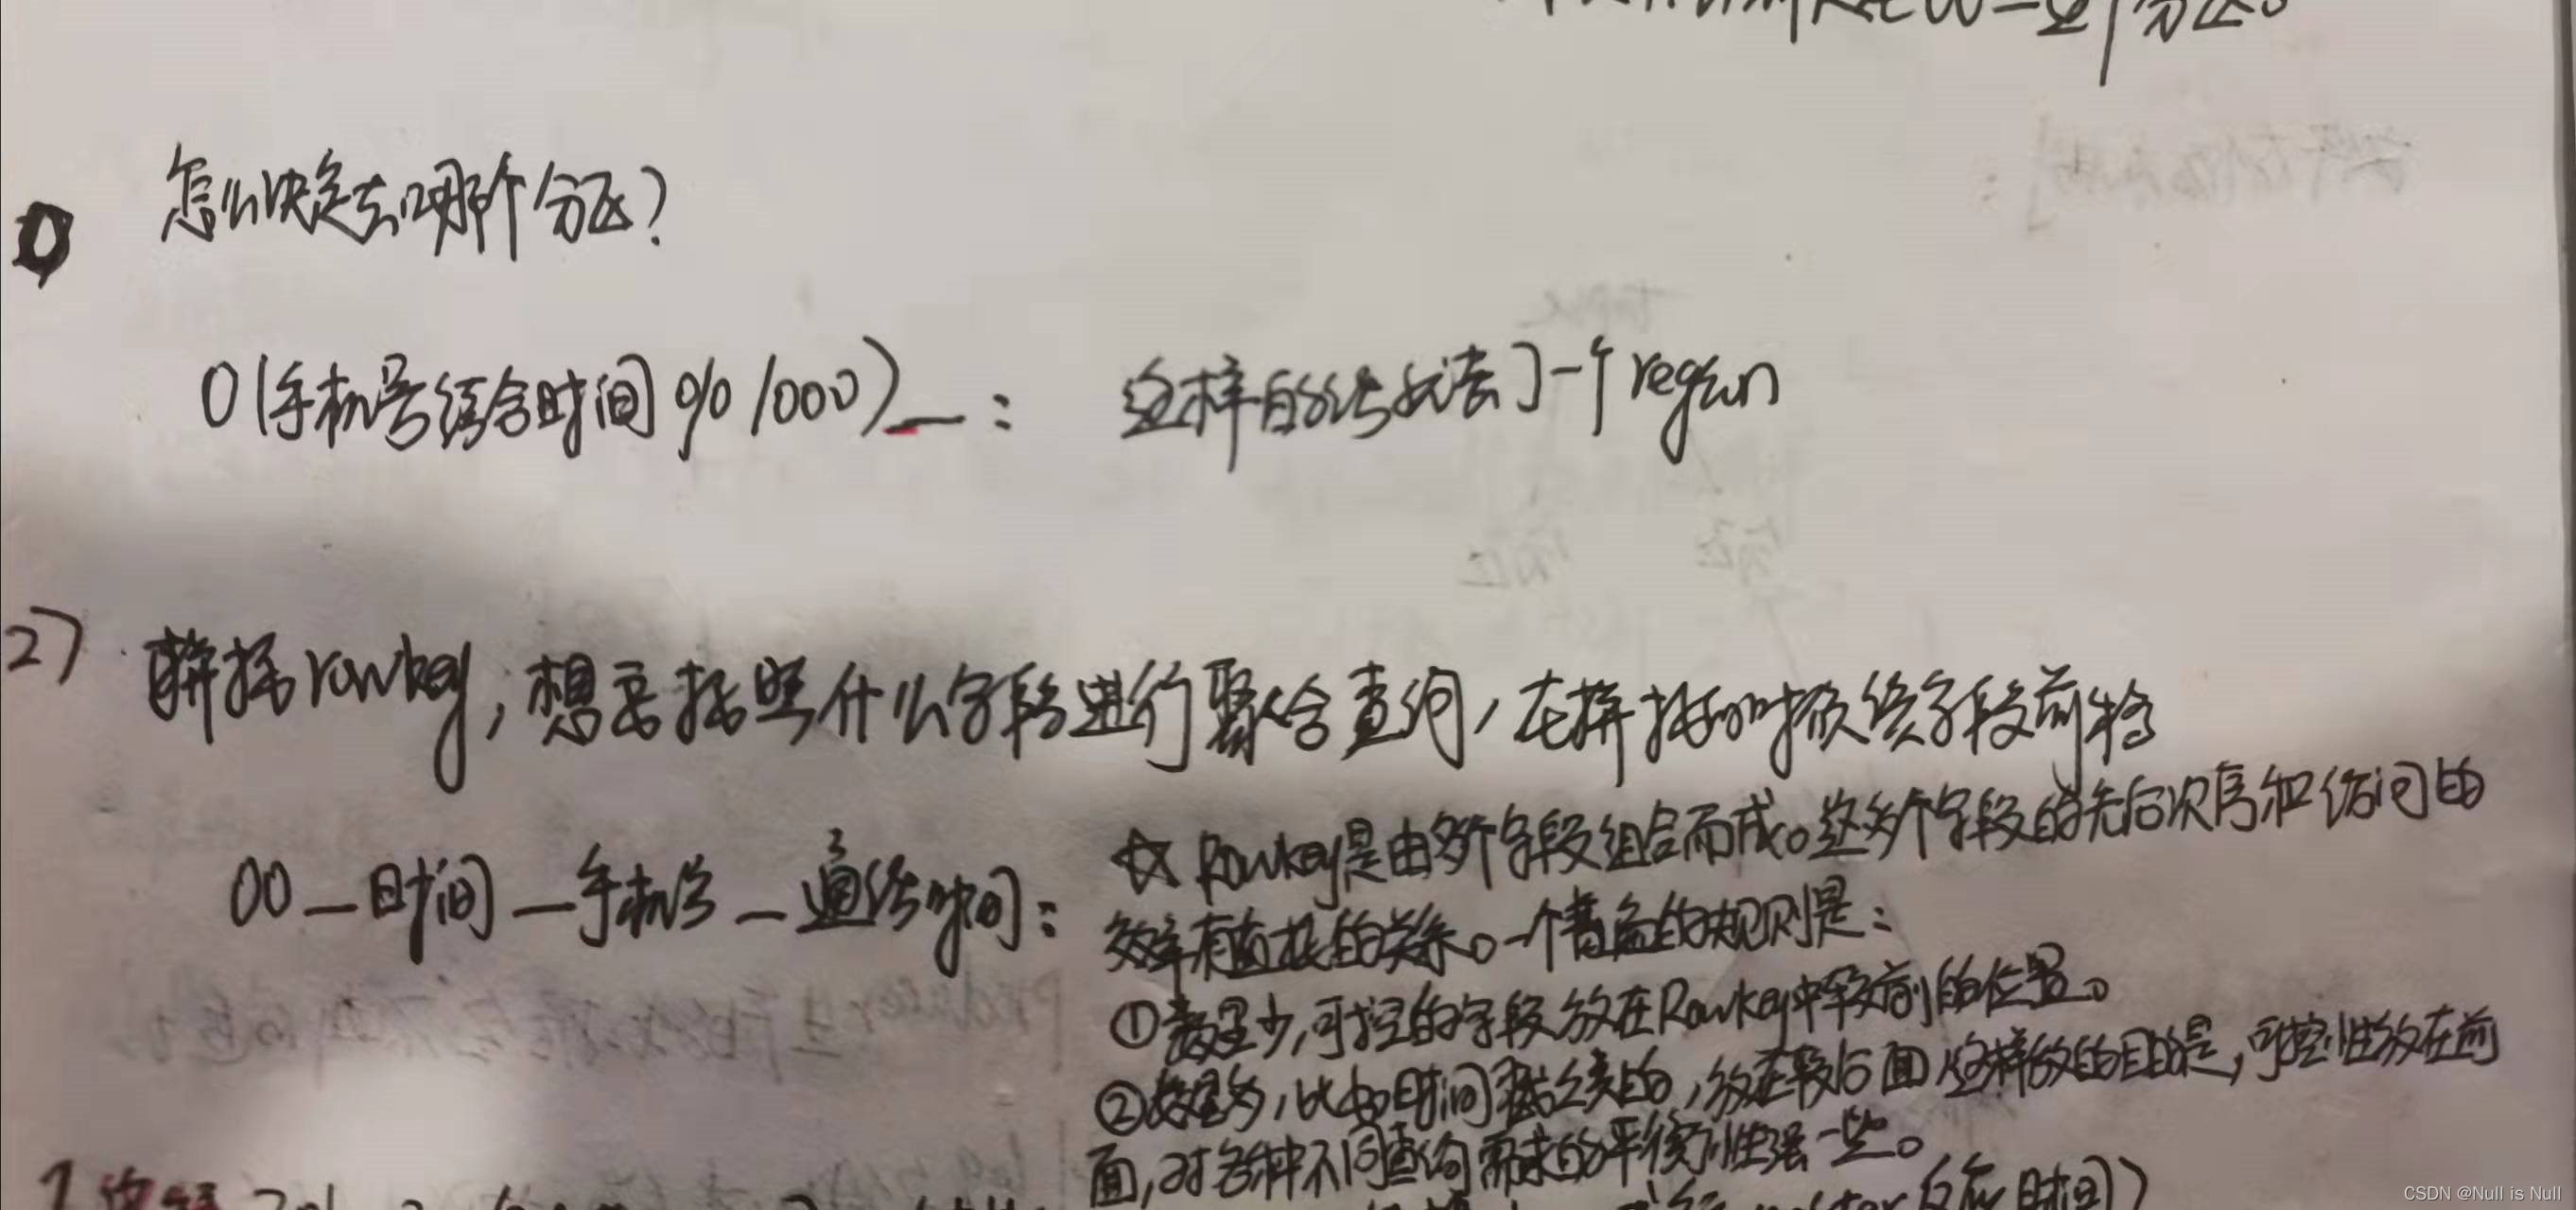 怎么决定去哪个分区?
0(手机号结合时间%1000)_: 这样的话就去了一个region
2) 拼接rowkey,想要按照什么字段进行聚合查询,在拼接时候该字段前移
00_时间_手机号_通话时间:
☆ Rowkey是由多个字段组合而成。这多个字段的先后次序和访问的
效率有直接的关系。一个普遍的规则是:
①数量少,可控的字段放在Rowkey中较前的位置。
②数量多,比如时间戳之类的,放在较后面,这样做的目的是,可控性放在前
面,对各种不同查询需求的平衡性强一些。
反应时间)
CSDN @Null is Null